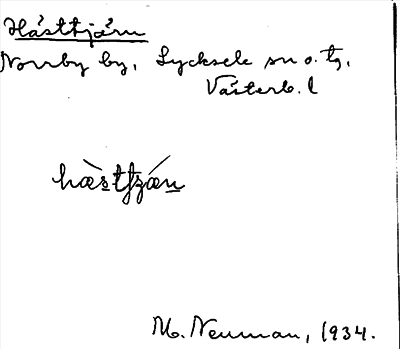 Hästtjärn
Norrby by, Lycksele sn o. tg,
Västerb. l
hæ̀stʃzǽn
M. Neuman, 1934.